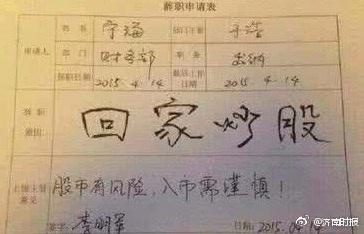 辞职申请表
申请人 姓名 宁海 部门主管 于浩
部门 财务部 职务 出纳
2015-4-14 2015-4-14
辞职
原因 回家炒股
上级主管
意见 股市有风险，入市需谨慎！
签字：李明军 日期：2015.04.14
@济南时报